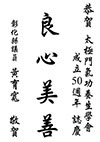 恭賀
太極門氣功養生學會
成立50週年誌慶
良心美善
彰化縣議員 黃育寬 敬賀